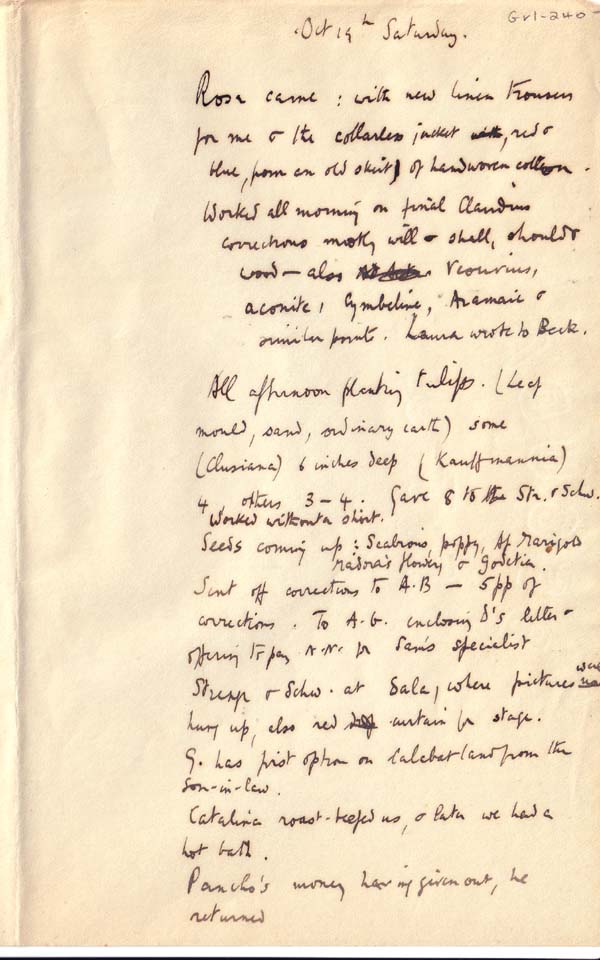 Gr1-240
Oct 19th Saturday.
Rosa came: with new linen trousers
for me & the collarless jacket, red &
blue, from an old skirt, of handwoven cotton.
Worked all morning on final Claudius
corrections mostly will & shall, should &
woo— also Vesuvius,
aconite, Cymbeline, Aramaic &
similar points. Laura wrote to Beck.
All afternoon planting tulips. (Leaf
mould, sand, ordinary earth) some
(Clusiana) 6 inches deep (Kauffmannia)
4, others 3–4. Gave 8 to the Str. & Schw.
Worked without a shirt.
Seeds coming up: Scabious, poppy, Af Marigold
flowery & Godetia.
Sent off corrections to A.B — 5 pp of
corrections. To A.G. enclosing D's letter &
offering to pay N.N. for Sam's specialist
Strenge & Schw. at Sala, where pictures were
hung up, also red curtain for stage.
G. has first option on land from the
son-in-law.
Catalina roast-beefed us, & later we had a
hot bath.
Pancho's money having given out, he
returned